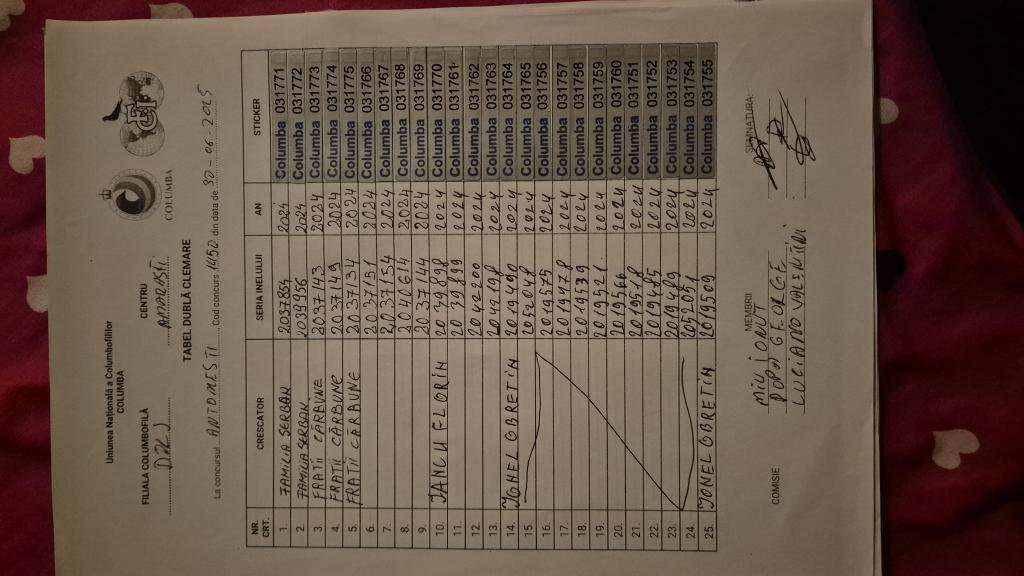 Uniunea Națională a Columbofililor
COLUMBA
COLUMBA
FILIALA COLUMBOFILĂ
CENTRU
DOLJ
TABEL DUBLĂ CLEMARE
La concursul ANTONESTI Cod concurs 1450 din data de 30-06-2025
NR. CRT. CRESCATOR SERIA INELULUI AN STICKER
1. FAMILIA SERBAN 2037854 2024 Columba 031771
2. FAMILIA SERBAN 2039956 2024 Columba 031772
3. FRATII CĂRBUNE 2037143 2024 Columba 031773
4. FRATII CĂRBUNE 2037149 2024 Columba 031774
5. FRATII CĂRBUNE 2037134 2024 Columba 031775
6. 2037151 2024 Columba 031766
7. 2037154 2024 Columba 031767
8. 2041614 2024 Columba 031768
9. 2037144 2024 Columba 031769
10. IANCU FLORIN 2039898 2024 Columba 031770
11. 2039899 2024 Columba 031761
12. 2042200 2024 Columba 031762
13. 2042198 2024 Columba 031763
14. IONEL OBRETIN 2019490 2024 Columba 031764
15. 2052048 2024 Columba 031765
16. 2019575 2024 Columba 031756
17. 2019478 2024 Columba 031757
18. 2019539 2024 Columba 031758
19. 2019521 2024 Columba 031759
20. 2019566 2024 Columba 031760
21. 2019518 2024 Columba 031751
22. 2019485 2024 Columba 031752
23. 2019489 2024 Columba 031753
24. 2052051 2024 Columba 031754
25. IONEL OBRETIN 2019509 2024 Columba 031755
COMISIE
MEMBRII
SEMNATURA
MIU IONUT
POPA GEORGE
LUCIANO VALENTIN